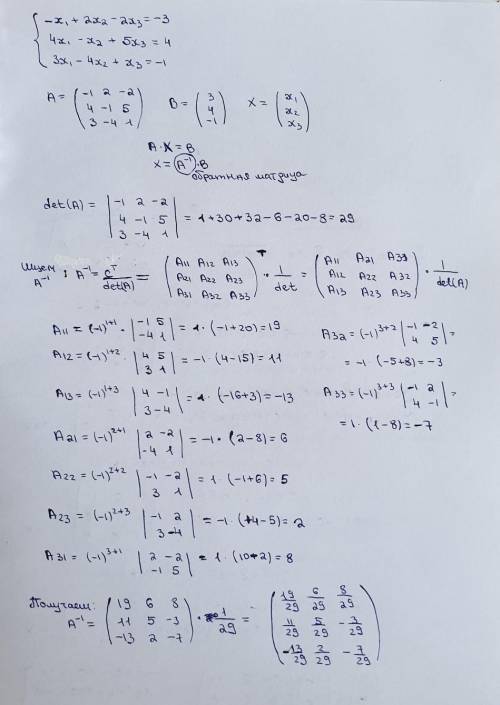 -x₁ + 2x₂ - 2x₃ = -3
4x₁ - x₂ + 5x₃ = 4
3x₁ - 4x₂ + x₃ = -1
A = ( -1 2 -2
4 -1 5
3 -4 1 )
B = ( 3
4
-1 )
X = ( x₁
x₂
x₃ )
A · X = B
X = A⁻¹ · B
обратная матрица
det(A) = | -1 2 -2
4 -1 5
3 -4 1 | = 1+30+32-6-20-8=29
Ищем A⁻¹: A⁻¹ = Cᵀ/det(A) = ( A11 A12 A13
A21 A22 A23
A31 A32 A33 )ᵀ · 1/det = ( A11 A21 A33
A12 A22 A32
A13 A23 A33 ) · 1/det(A)
A11 = (-1)¹⁺¹ · | -1 5
-4 1 | = 1·(-1+20)=19
A12 = (-1)¹⁺² | 4 5
3 1 | = -1·(4-15)=11
A13 = (-1)¹⁺³ | 4 -1
3 -4 | = 1·(-16+3)=-13
A21 = (-1)²⁺¹ | 2 -2
-4 1 | = -1·(2-8)=6
A22 = (-1)²⁺² | -1 -2
3 1 | = 1·(-1+6)=5
A23 = (-1)²⁺³ | -1 2
3 -4 | = -1·(+4-5)=2
A31 = (-1)³⁺¹ | 2 -2
-1 5 | = 1·(10-2)=8
A32 = (-1)³⁺² | -1 -2
4 5 | =
= -1·(-5+8)=-3
A33 = (-1)³⁺³ | -1 2
4 -1 | =
= 1·(1-8)=-7
Получаем:
A⁻¹ = ( 19 6 8
11 5 -3
-13 2 -7 ) · 1/29 = ( 19/29 6/29 8/29
11/29 5/29 -3/29
-13/29 2/29 -7/29 )